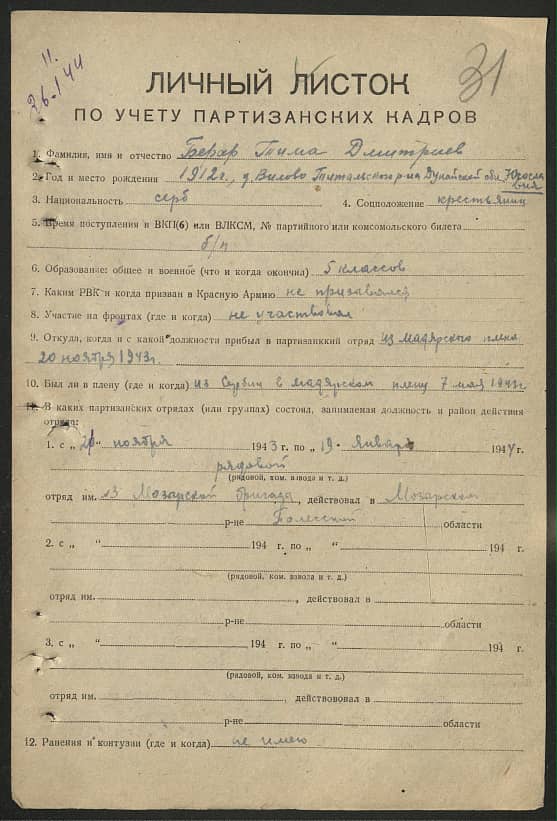 11.
26-I 44
31
ЛИЧНЫЙ ЛИСТОК
ПО УЧЕТУ ПАРТИЗАНСКИХ КАДРОВ
1. Фамилия, имя и отчество Берар Тима Дмитриев
2. Год и место рождения 1912г., д. Вилово Титальского р-на Дунайской обл. Югосла
вия
3. Национальность серб 4. Соцположение крестьянин
5. Время поступления в ВКП(б) или ВЛКСМ, № партийного или комсомольского билета
б/п
6. Образование: общее и военное (что и когда окончил) 5 классов
7. Каким РВК и когда призван в Красную Армию не призавался
8. Участие на фронтах (где и когда) не участвовал
9. Откуда, когда и с какой должности прибыл в партизанккий отряд из мадярского плена
20 ноября 1943г.
10. Был ли в плену (где и когда) из Сербии в мадярском плену 7 мая 1943г
11. В каких партизанских отрядах (или группах) состоял, занимаемая должность и район действия
отряда:
1. с „20“ ноября 1943 г. по „19“ январь 1944 г.
рядовой
(рядовой, ком. взвода и т. д.)
отряд им. 13 Мозарской бригада, действовал в Мозарском
р-не Полесской области
2. с „ “ 194 г. по „ “ 194 г.
(рядовой, ком. взвола и т. д.)
отряд им. , действовал в
р-не области
3. с „ “ 194 г. по „ “ 194 г.
(рядовой, ком. взвода и т. д.)
отряд им. , действовал в
р-не области
12. Ранения и контузии (где и когда) не имею